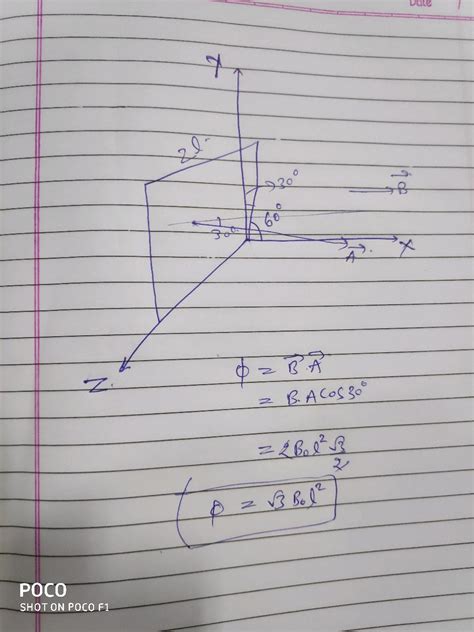 Date
Y
2l
30°
B⃗
60°
30°
X
A⃗
Z
ϕ = B⃗.A⃗
= B.A cos30°
= 2B₀l² √3/2
ϕ = √3 B₀l²
POCO
SHOT ON POCO F1